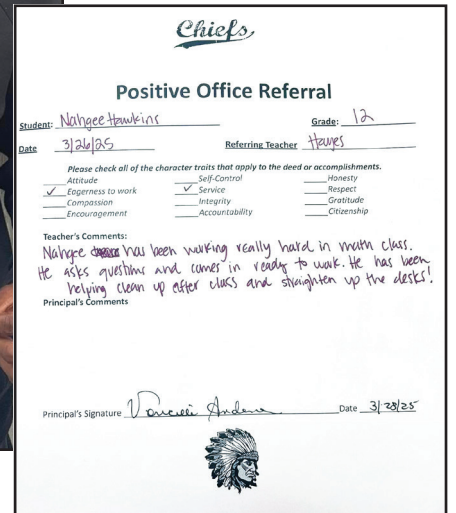 Chiefs
Positive Office Referral
Student: Nahgee Hawkins Grade: 12
Date 3/26/25 Referring Teacher Hayes
Please check all of the character traits that apply to the deed or accomplishments.
Attitude Self-Control Honesty
✓ Eagerness to work ✓ Service Respect
Compassion Integrity Gratitude
Encouragement Accountability Citizenship
Teacher's Comments:
Nahgee has been working really hard in math class.
He asks questions and comes in ready to work. He has been
helping clean up after class and straighten up the desks!
Principal's Comments
Principal's Signature Date 3/28/25